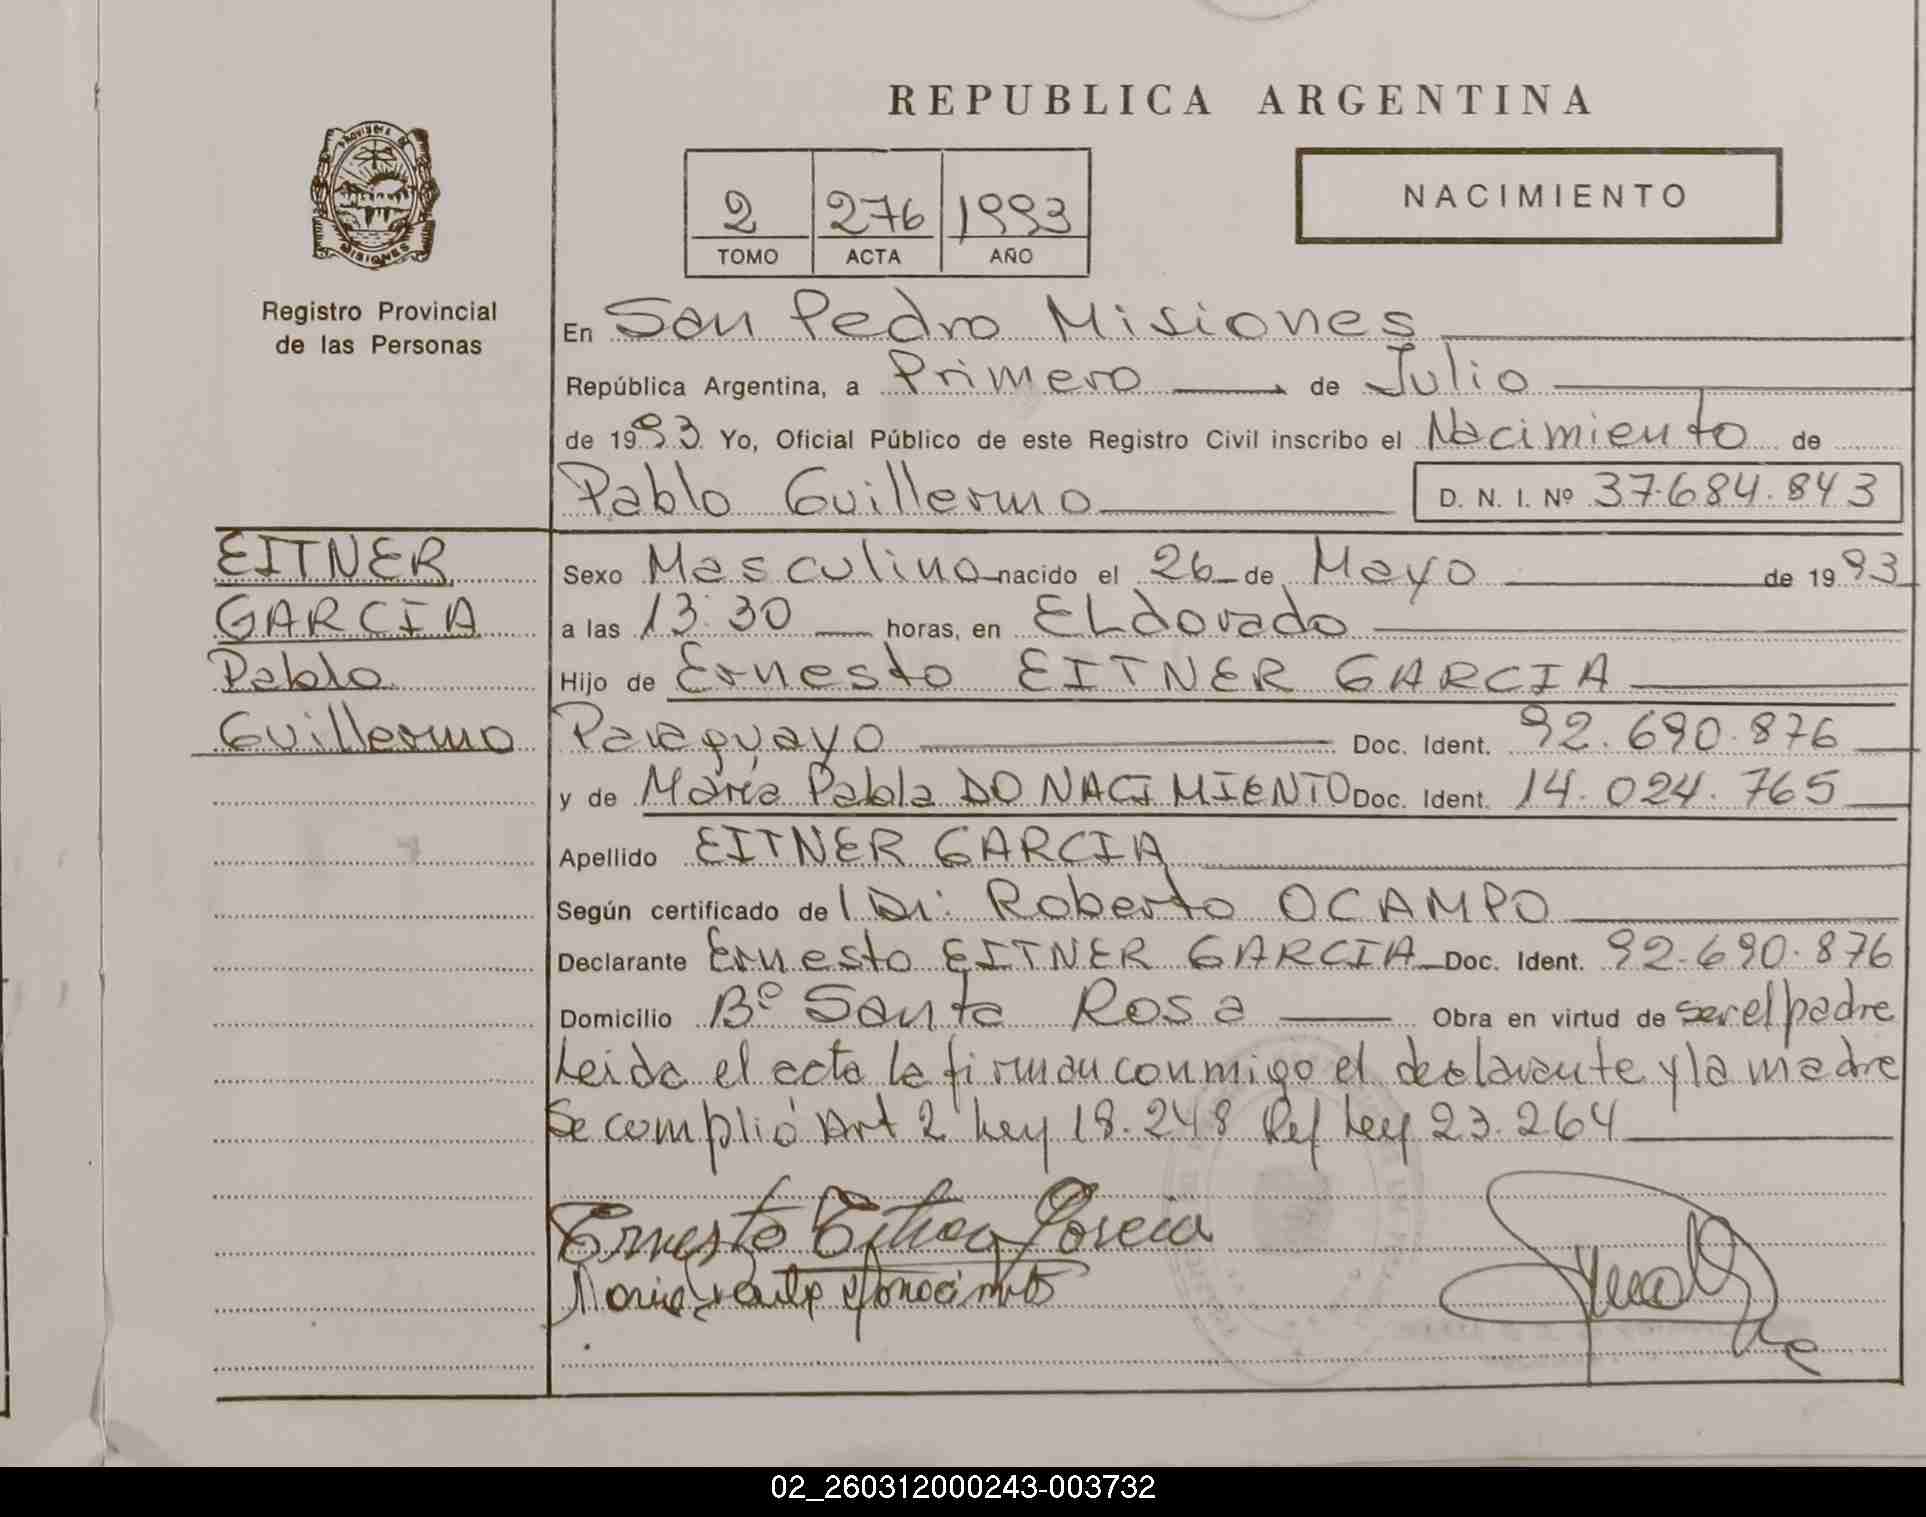 REPUBLICA ARGENTINA
PROVINCIA DE
MISIONES
Registro Provincial
de las Personas
2 276 1993
TOMO ACTA AÑO
NACIMIENTO
En San Pedro Misiones
República Argentina, a Primero de Julio
de 1993 Yo, Oficial Público de este Registro Civil inscribo el Nacimiento de
Pablo Guillermo D. N. I. Nº 37.684.843
EITNER
GARCIA
Pablo
Guillermo
Sexo Masculino nacido el 26 de Mayo de 1993
a las 13:30 horas, en ELdorado
Hijo de Ernesto EITNER GARCIA
Paraguayo Doc. Ident. 92.690.876
y de María Pabla DO NACIMIENTO Doc. Ident. 14.024.765
Apellido EITNER GARCIA
Según certificado del Dr: Roberto OCAMPO
Declarante Ernesto EITNER GARCIA Doc. Ident. 92.690.876
Domicilio Bº Santa Rosa Obra en virtud de ser el padre
Leida el acta la firman conmigo el declarante y la madre
Se complió Art 2 Ley 18.248 Ref Ley 23.264
Ernesto Eitner Garcia
02_260312000243-003732